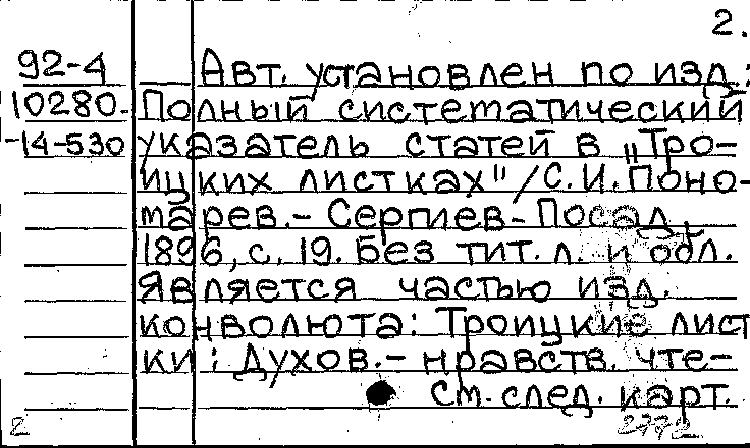 2.
92-4 Авт. установлен по изд.:
10280- Полный систематический
-14-530 указатель статей в „Тро-
ицких листках" / С. И. Поно-
марев. - Сергиев-Посад,
1896, с. 19. Без тит. л. и обл.
Является частью изд.
конволюта: Троицкие лист
ки: Духов.- нравств. чте-
См. след. карт.
2772
2